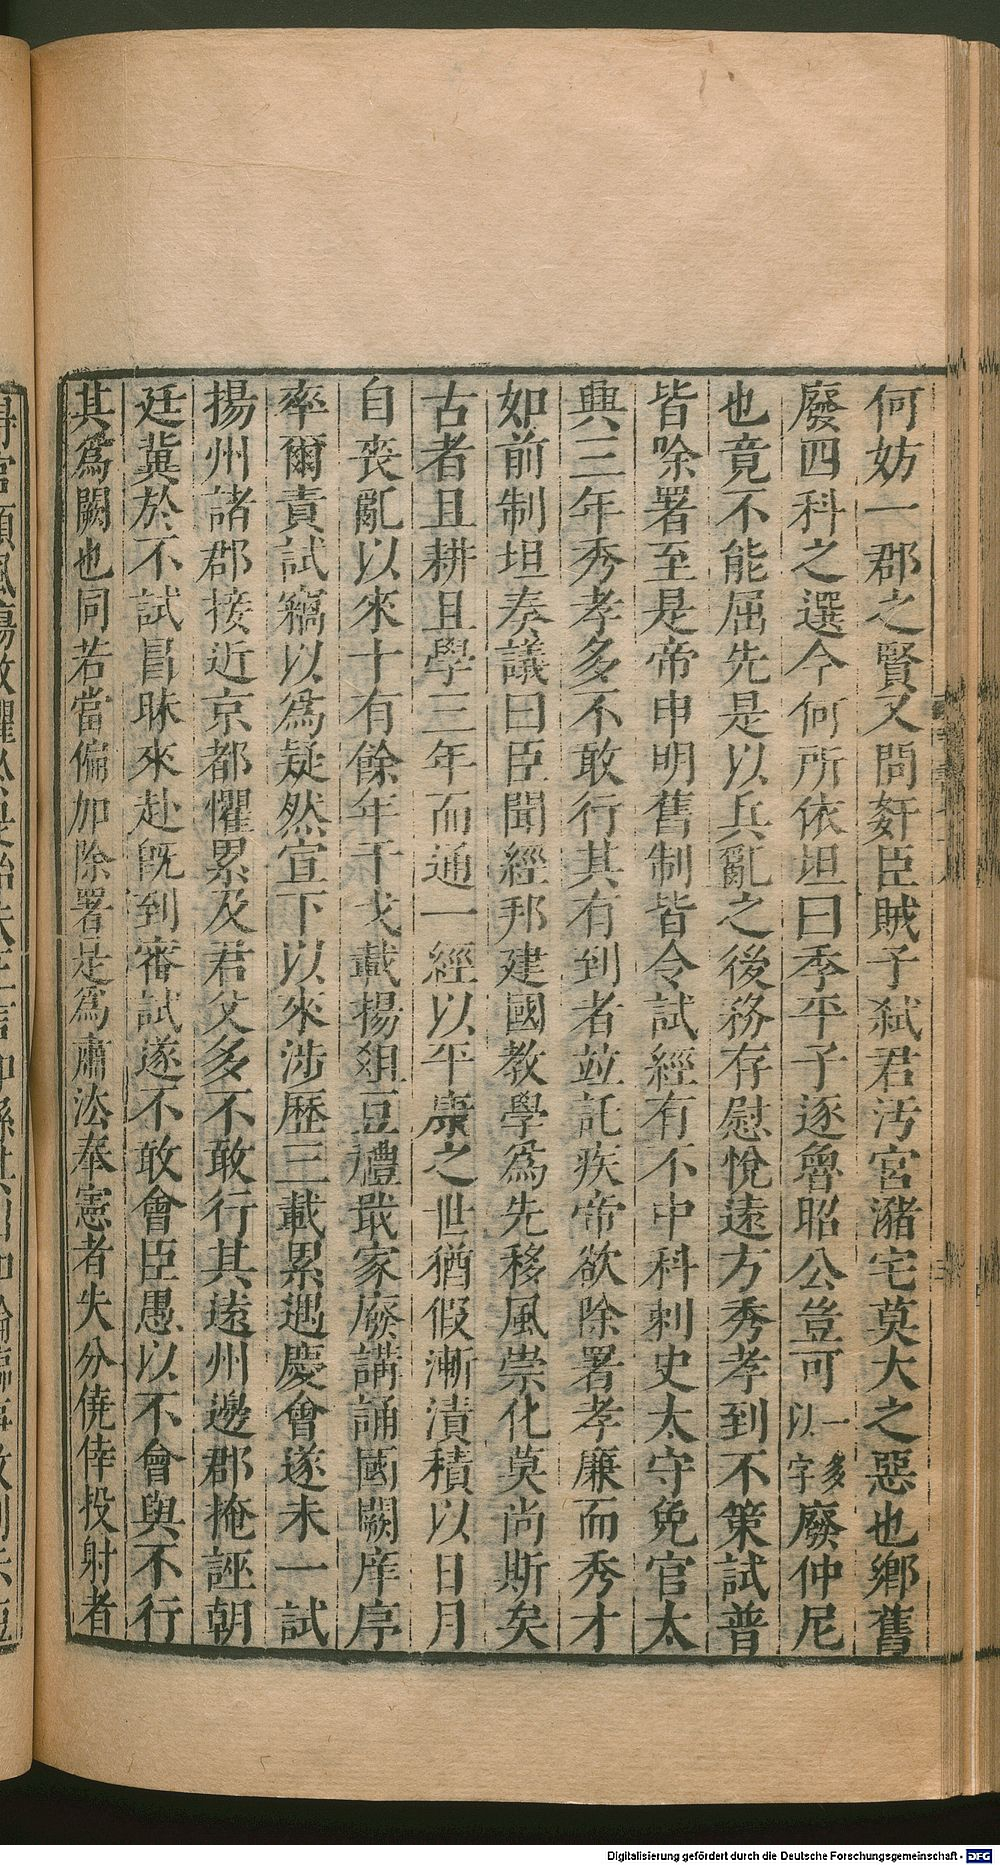 何妨一郡之賢又問奸臣賊子弑君汚宮潴宅莫大之惡也鄉舊
廢四科之選今何所依坦曰季平子逐魯昭公豈可一多以字廢仲尼
也竟不能屈先是以兵亂之後務存慰悅遠方秀孝到不策試普
皆除署至是帝申明舊制皆令試經有不中科刺史太守免官太
興三年秀孝多不敢行其有到者並託疾帝欲除署孝廉而秀才
如前制坦奏議曰臣聞經邦建國教學為先移風崇化莫尚斯矣
古者且耕且學三年而通一經以平康之世猶假漸漬積以日月
自喪亂以來十有餘年干戈載揚俎豆禮戢家廢講誦國闕庠序
率爾責試竊以為疑然宣下以來涉歷三載累遇慶會遂未一試
揚州諸郡接近京都懼累及君父多不敢行其遠州邊郡掩誣朝
廷冀於不試冒昧來赴既到審試遂不敢會臣愚以不會與不行
其為闕也同若當偏加除署是為肅法奉憲者失分僥倖投射者
Digitalisierung gefördert durch die Deutsche Forschungsgemeinschaft - DFG